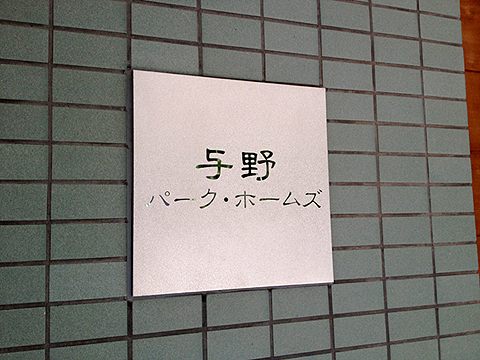 与野
パーク・ホームズ